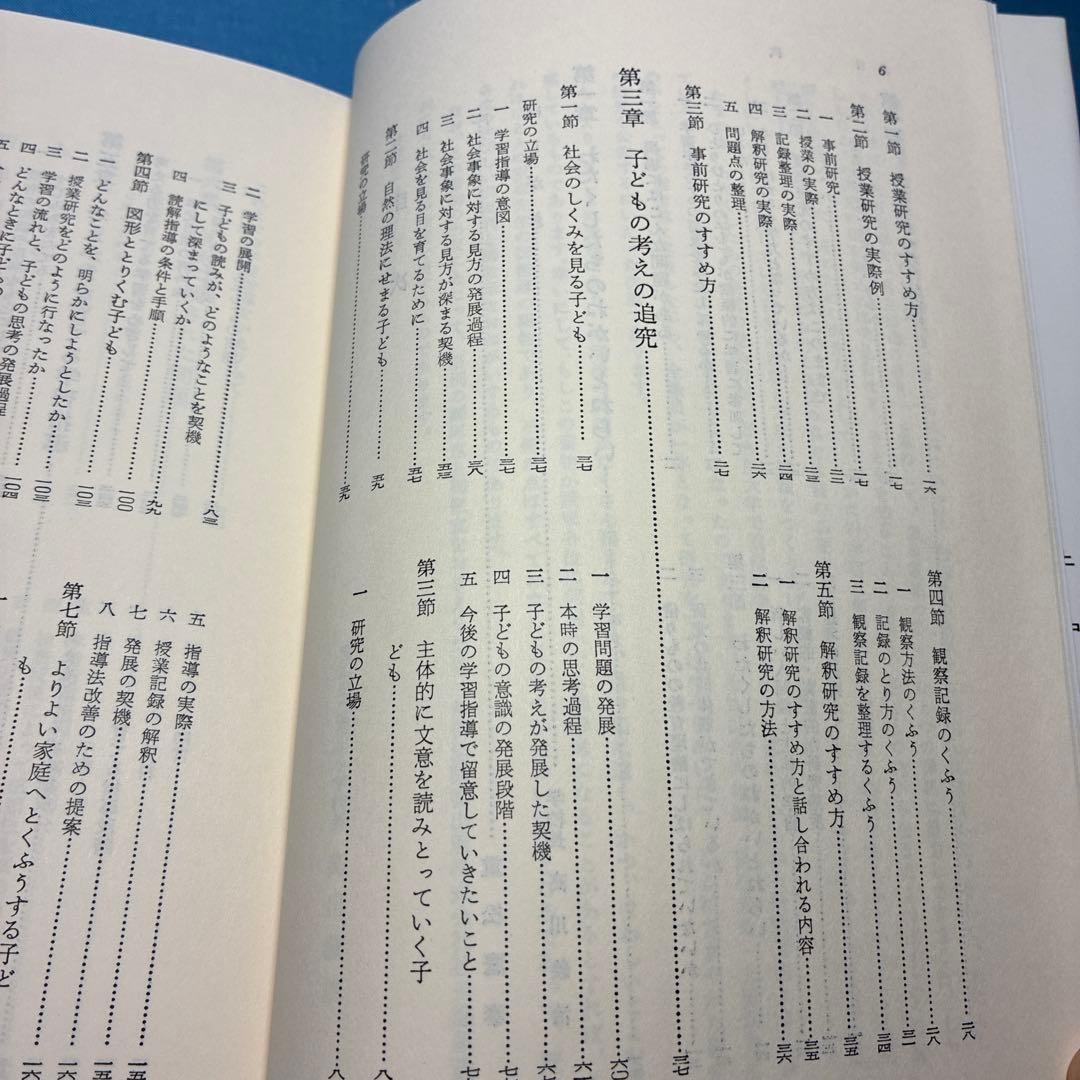 6
第一節 授業研究のすすめ方……一六
第二節 授業研究の実際例……一七
一 事前研究……一七
二 授業の実際……二二
三 記録整理の実際……二四
四 解釈研究の実際……二六
五 問題点の整理
第三節 事前研究のすすめ方……二七
第三章 子どもの考えの追究……三七
第一節 社会のしくみを見る子ども……三七
研究の立場……三七
一 学習指導の意図……三七
二 社会事象に対する見方の発展過程……三八
三 社会事象に対する見方が深まる契機……五三
四 社会を見る目を育てるために……五七
第二節 自然の理法にせまる子ども……五九
研究の立場……五九
第四節 観察記録のくふう……二八
一 観察方法のくふう……二八
二 記録のとり方のくふう……三一
三 観察記録を整理するくふう……三四
第五節 解釈研究のすすめ方……三五
一 解釈研究のすすめ方と話し合われる内容……三五
二 解釈研究の方法……三六
一 学習問題の発展……六〇
二 本時の思考過程
三 子どもの考えが発展した契機
四 子どもの意識の発展段階
五 今後の学習指導で留意していきたいこと
第三節 主体的に文意を読みとっていく子
ども
一 研究の立場
二 学習の展開……八三
三 子どもの読みが、どのようなことを契機
にして深まっていくか
四 読解指導の条件と手順……九九
第四節 図形ととりくむ子ども……一〇〇
一 どんなことを、明らかにしようとしたか……一〇二
二 授業研究をどのように行なったか……一〇三
三 学習の流れと、子どもの思考の発展過程……一〇四
四 どんなときに子ども
五 指導の実際
六 授業記録の解釈
七 発展の契機
八 指導法改善のための提案
第七節 よりよい家庭へとくふうする子ど
も
一